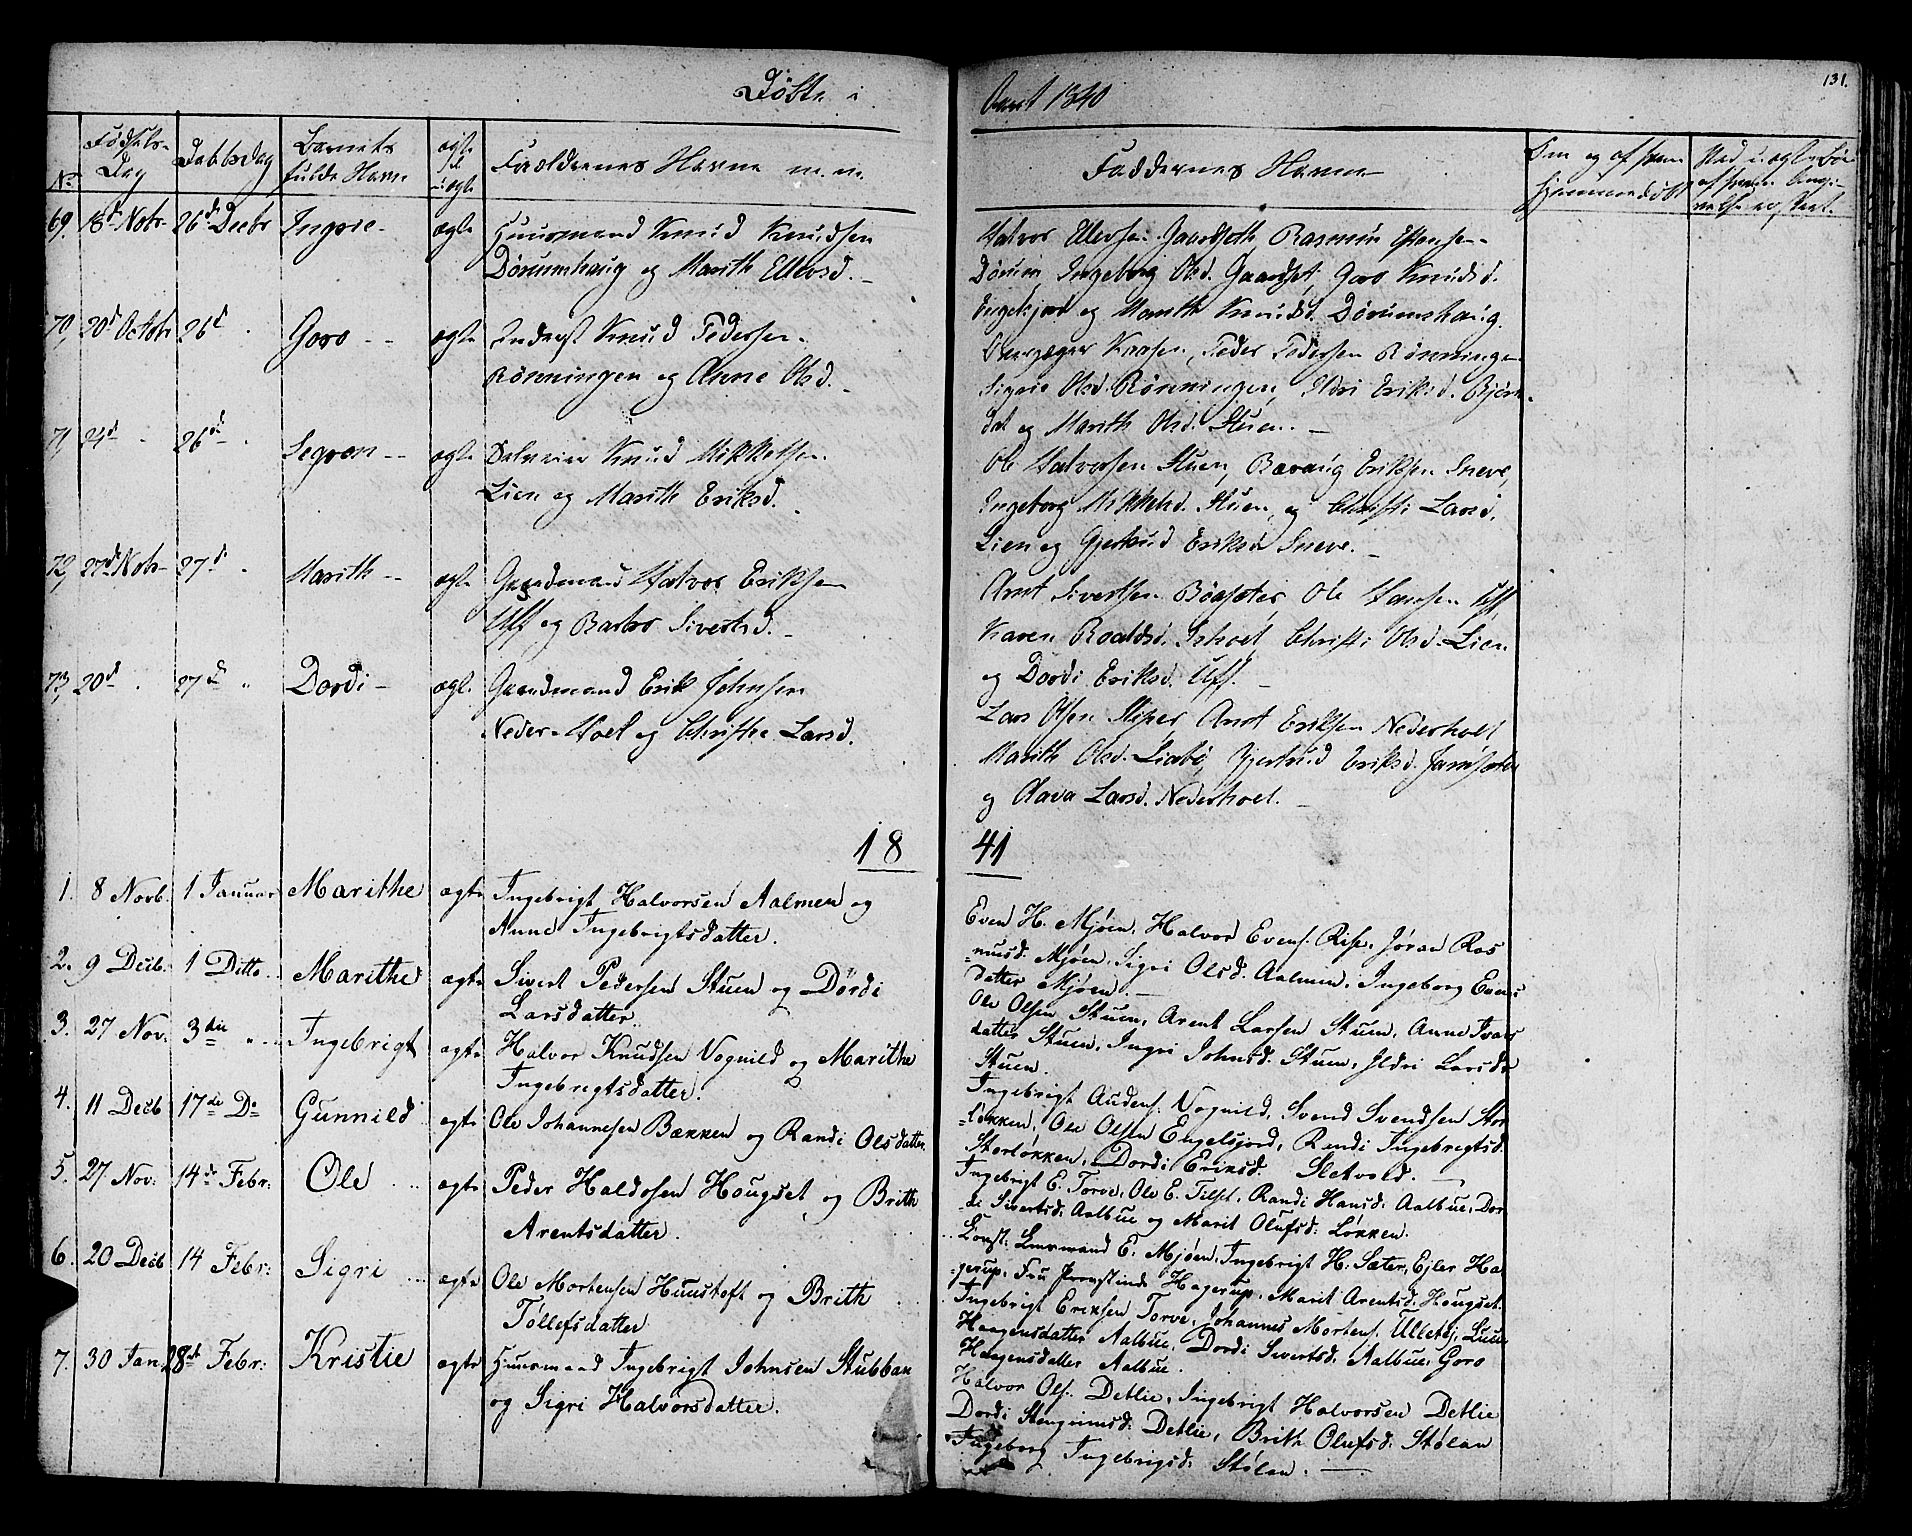 Døbte i
Aaret 1840
131.
No
Fødsels-
Dag
Daabsdag
Barnets
fulde Navn
ægte
el.
uægte
Forældrenes Navne m.m.
Faddernes Navne
69. 18d Novbr 26d Decbr Ingrie ægte Huusmand Knud Knudsen
Dørumhaug og Marith Ellevsd.
Halvor Ellevsen Gaardseth Rasmus Estensen
Dørum, Ingeborg Olsd. Gaardset, Goro Knudsd.
Engelsjord og Marith Knudsd. Dørumshaug.
70, 20d Octobr 26d Goro ægte Inderst Knud Pedersen
Rønningen og Anne Olsd.
Peder Pedersen Rønningen
Sigrie Olsd. Rønningen, Ildri Eriksd. Bjørn-
dal og Marith Olsd. Stuen.
71, 24d 26d Segron ægte Knud Mikkelsen
Lien og Marith Eriksd.
Ole Halvorsen Stuen, Baraug Eriksen Sneve,
Ingeborg Mikkelsd. Stuen, og Christi Larsd.
Lien og Gjertrud Eriksd Sneve.
72, 27d Novbr 27d Marith ægte Gaardmand Halvor Eriksen
Uff og Barbro Sivertsd.
Arnt Sivertsen Bøasæter, Ole Hansen Uff,
Karen Roaldsd. Ishoel, Christi Olsd. Lien
og Dordi Eriksd. Uff.
73, 20d 27d Dordi ægte Gaardmand Erik Johnsen
Neder-Hoel og Christie Larsd.
Lars Olsen, Arnt Eriksen Nederhoel
Marith Olsd. Liabø, Gjertrud Eriksd.
og Aava Larsd. Nederhoel.
18 41
1. 8 Novb. 1 Januar Marithe ægte Ingebrigt Halvorsen Aalmen og
Anne Ingebrigtsdatter.
Even H. Mjøen, Halvor Evens. Rise, Jøran Ras
musd. Mjøen, Sigri Olsd. Aalmen, Ingeborg Evens
datter Mjøen.
2. 9 Decb. 1 Ditto Marithe ægte Sivert Pedersen Stuen og Dørdi
Larsdatter.
Ole Olsen Stuen, Arent Larsen Stuen, Anne Ivars
datter Stuen, Ingri Johnsd. Stuen, Ildri Larsdr
Stuen.
3. 27 Nov. 3die Ingebrigt ægte Halvor Knudsen Vognild og Marithe
Ingebregtsdatter.
Ingebrigt Audens. Vognild, Svend Svendsen Stor
løkken, Ole Olsen Engelsjord, Randi Ingebregtsd.
Storløkken, Dordi Eriksd. Sletvold.
4. 11 Decb 17de Do Gunnild ægte Ole Johannesen Bækken og Randi Olsdatter.
Ingebrigt E. Torve, Ole E. Tilset, Randi Hansd. Aalbue, Dor
di Sivertsd. Aalbue og Marit Olufsd. Løkken.
5. 27 Nov: 14de Febr: Ole ægte Peder Haldosen Hougset og Brith
Arentsdatter.
E. Mjøen, Ingebrigt H. Sæter, Ejler Ha
gerup, Fru Provstinde Hagerup, Marit Arentsd. Hougset.
6. 20 Decb 14 Febr: Sigri ægte Ole Mortensen Huustoft og Brith
Tøllefsdatter
Ingebrigt Eriksen Torve, Johannes Mortens. Ulletøj,
Haagensdatter Aalbue, Dordi Sivertsd. Aalbue, Goro
Haagensdatter Aalbue.
7. 30 Jan 28de Febr: Kristie ægte Huusmand Ingebrigt Johnsen Stubban
og Sigri Halvorsdatter.
Halvor Ols. Detlie, Ingebrigt Halvorsen Detlie
Dordi Stengrimsd. Detlie, Brith Olufsd. Stølan
Ingeborg Ingebrigsd. Stølan.